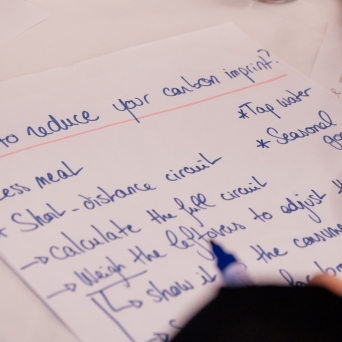 to reduce your carbon imprint?
*Tap water
* Seasonal
less meat
Short-distance circuit
→ Calculate the full circuit
→ Weigh the leftovers to adjust
↳ show it the